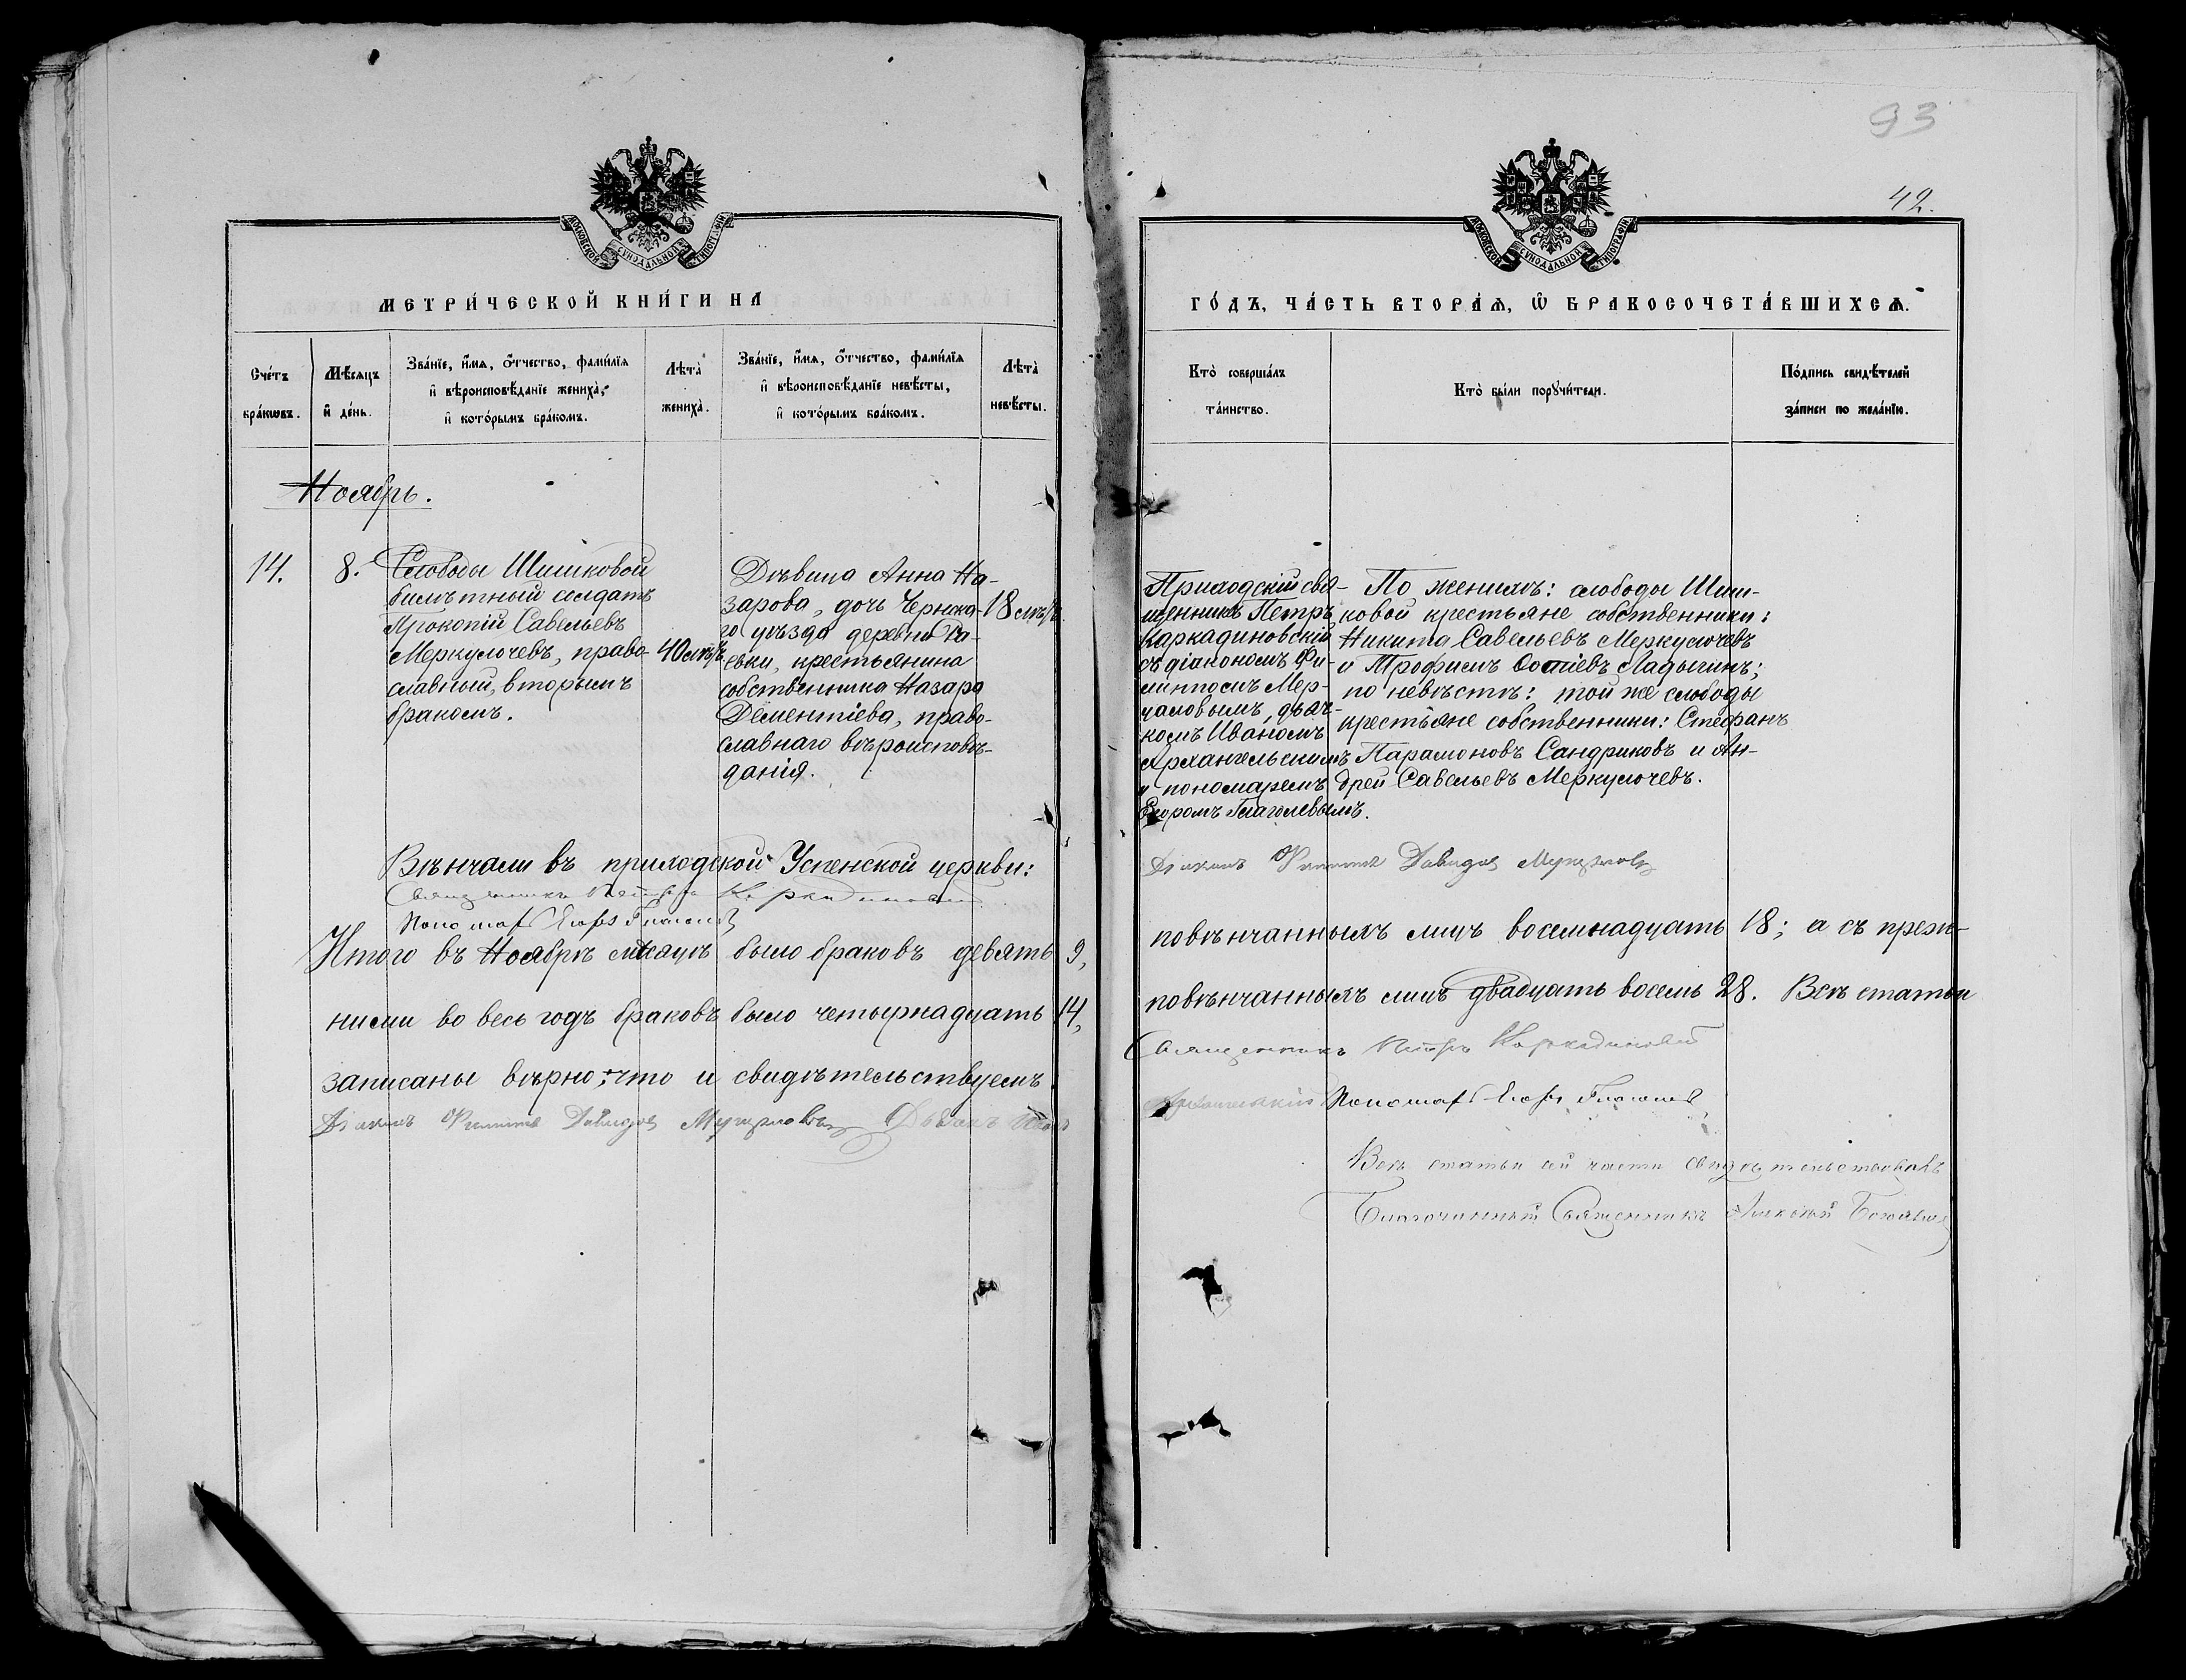 93
42.
МОСКОВСКОЙ СУНОДАЛЬНОЙ ТИПОГРАФІИ
МЕТРИ́ЧЕСКОЙ КНИ́ГИ НА
Сче́тъ бра́кѡвъ.
Мѣ́сяцъ и҆ де́нь.
Зва́нїе, и҆́мѧ, ѻ҆́тчество, фамѝлїѧ и҆ вѣроисповѣ́данїе жениха̀, и҆ кото́рымъ бра́комъ.
Лѣта̀ жениха̀.
Зва́нїе, и҆́мѧ, ѻ҆́тчество, фамѝлїѧ и҆ вѣроисповѣ́данїе невѣ́сты, и҆ кото́рымъ бра́комъ.
Лѣта̀ невѣ́сты.
Ноябрь.
14.
8.
Слободы Шишковой
билѣтный солдатъ
Прокопій Савельевъ
Меркулочевъ, право-
славный, вторымъ
бракомъ.
40 лѣтъ
Дѣвица Анна На-
зарова, дочь Чернска-
го уѣзда деревни Ра-
евки, крестьянина
собственника Назара
Дементіева, право-
славнаго вѣроисповѣ-
данія.
18 лѣтъ.
Вѣнчали въ приходской Успенской церкви:
Священникъ Петръ Каркадиновскій
Пономарь Егоръ Глаголевъ
Итого въ Ноябрѣ мѣсяцѣ было браковъ девять 9,
ними во весь годъ браковъ было четырнадцать 14,
записаны вѣрно; что и свидѣтельствуемъ
Діаконъ Филиппъ Давидовъ Дьячекъ Иванъ
МОСКОВСКОЙ СУНОДАЛЬНОЙ ТИПОГРАФІИ
ГО́ДЪ, ЧА́СТЬ ВТОРА́Ѧ, Ѽ БРАКОСОЧЕТА́ВШИХСѦ.
Кто̀ соверша́лъ та́инство.
Кто̀ бы́ли порꙋчи́тели.
По́дпись свидѣ́телей за́писи по жела́нїю.
Приходскій свя-
щенникъ Петръ
Каркадиновскій
съ діакономъ Фи-
липпомъ Мер-
цаловымъ, дьяч-
комъ Иваномъ
Архангельскимъ
и пономаремъ
Егоромъ Глаголевымъ.
По женихѣ: слободы Шиш-
ковой крестьяне собственники:
Никита Савельевъ Меркулочевъ
и Трофимъ Фотіевъ Ладыгинъ;
по невѣстѣ: той же слободы
крестьяне собственники: Стефанъ
Парамоновъ Сандриковъ и Ан-
дрей Савельевъ Меркулочевъ.
Діаконъ Филиппъ Давидовъ
повѣнчанныхъ лицъ восемнадцать 18; а съ преж-
повѣнчанныхъ лицъ двадцать восемь 28. Всѣ статьи
Священникъ Петръ Каркадиновскій
Архангельскій Пономарь Егоръ Глаголевъ
Всѣ статьи сей части свидѣтельствовалъ
Благочинный Священникъ Алексѣй